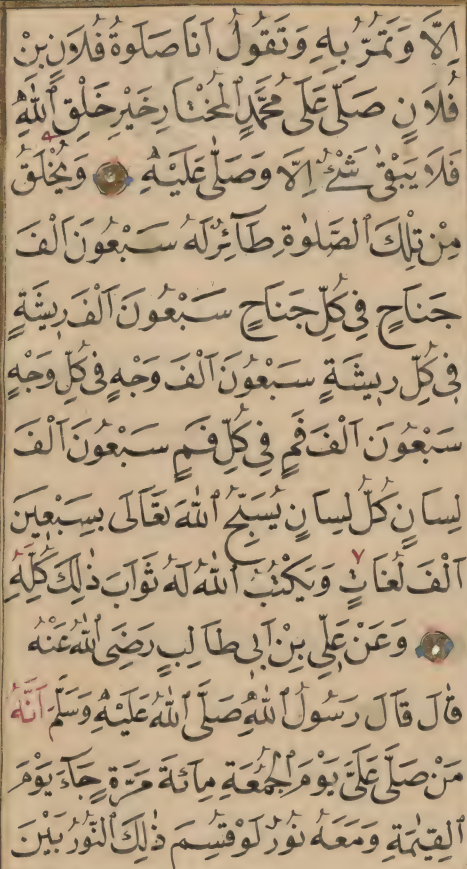 اِلَّا وَتَمُرُّ بِهِ وَتَقُولُ اَنَا صَلَوةُ فُلَانِ بْنِ
فُلَانٍ صَلَّى عَلَى مُحَمَّدٍ الْمُخْتَارِ خَيْرِ خَلْقِ اللّٰهِ
فَلَا يَبْقٰى شَيْءٌ اِلَّا وَصَلّٰى عَلَيْهِ وَيُخْلَقُ
مِنْ تِلْكَ الصَّلٰوةِ طَآئِرٌ لَهُ سَبْعُونَ اَلْفَ
جَنَاحٍ فِى كُلِّ جَنَاحٍ سَبْعُونَ اَلْفَ رِيشَةٍ
فِى كُلِّ رِيشَةٍ سَبْعُونَ اَلْفَ وَجْهٍ فِى كُلِّ وَجْهٍ
سَبْعُونَ اَلْفَ فَمٍ فِى كُلِّ فَمٍ سَبْعُونَ اَلْفَ
لِسَانٍ كُلُّ لِسَانٍ يُسَبِّحُ اللّٰهَ تَعَالَى بِسَبْعِينَ
اَلْفَ لُغَاتٍ وَيَكْتُبُ اللّٰهُ لَهُ ثَوَابَ ذٰلِكَ كُلِّهِ
وَعَنْ عَلِيِّ بْنِ اَبِى طَالِبٍ رَضِيَ اللّٰهُ عَنْهُ
قَالَ قَالَ رَسُولُ اللّٰهِ صَلَّى اللّٰهُ عَلَيْهِ وَسَلَّمَ اَنَّهُ
مَنْ صَلَّى عَلَيَّ يَوْمَ الْجُمُعَةِ مِائَةَ مَرَّةٍ جَآءَ يَوْمَ
الْقِيٰمَةِ وَمَعَهُ نُورٌ لَوْ قُسِمَ ذٰلِكَ النُّورُ بَيْنَ